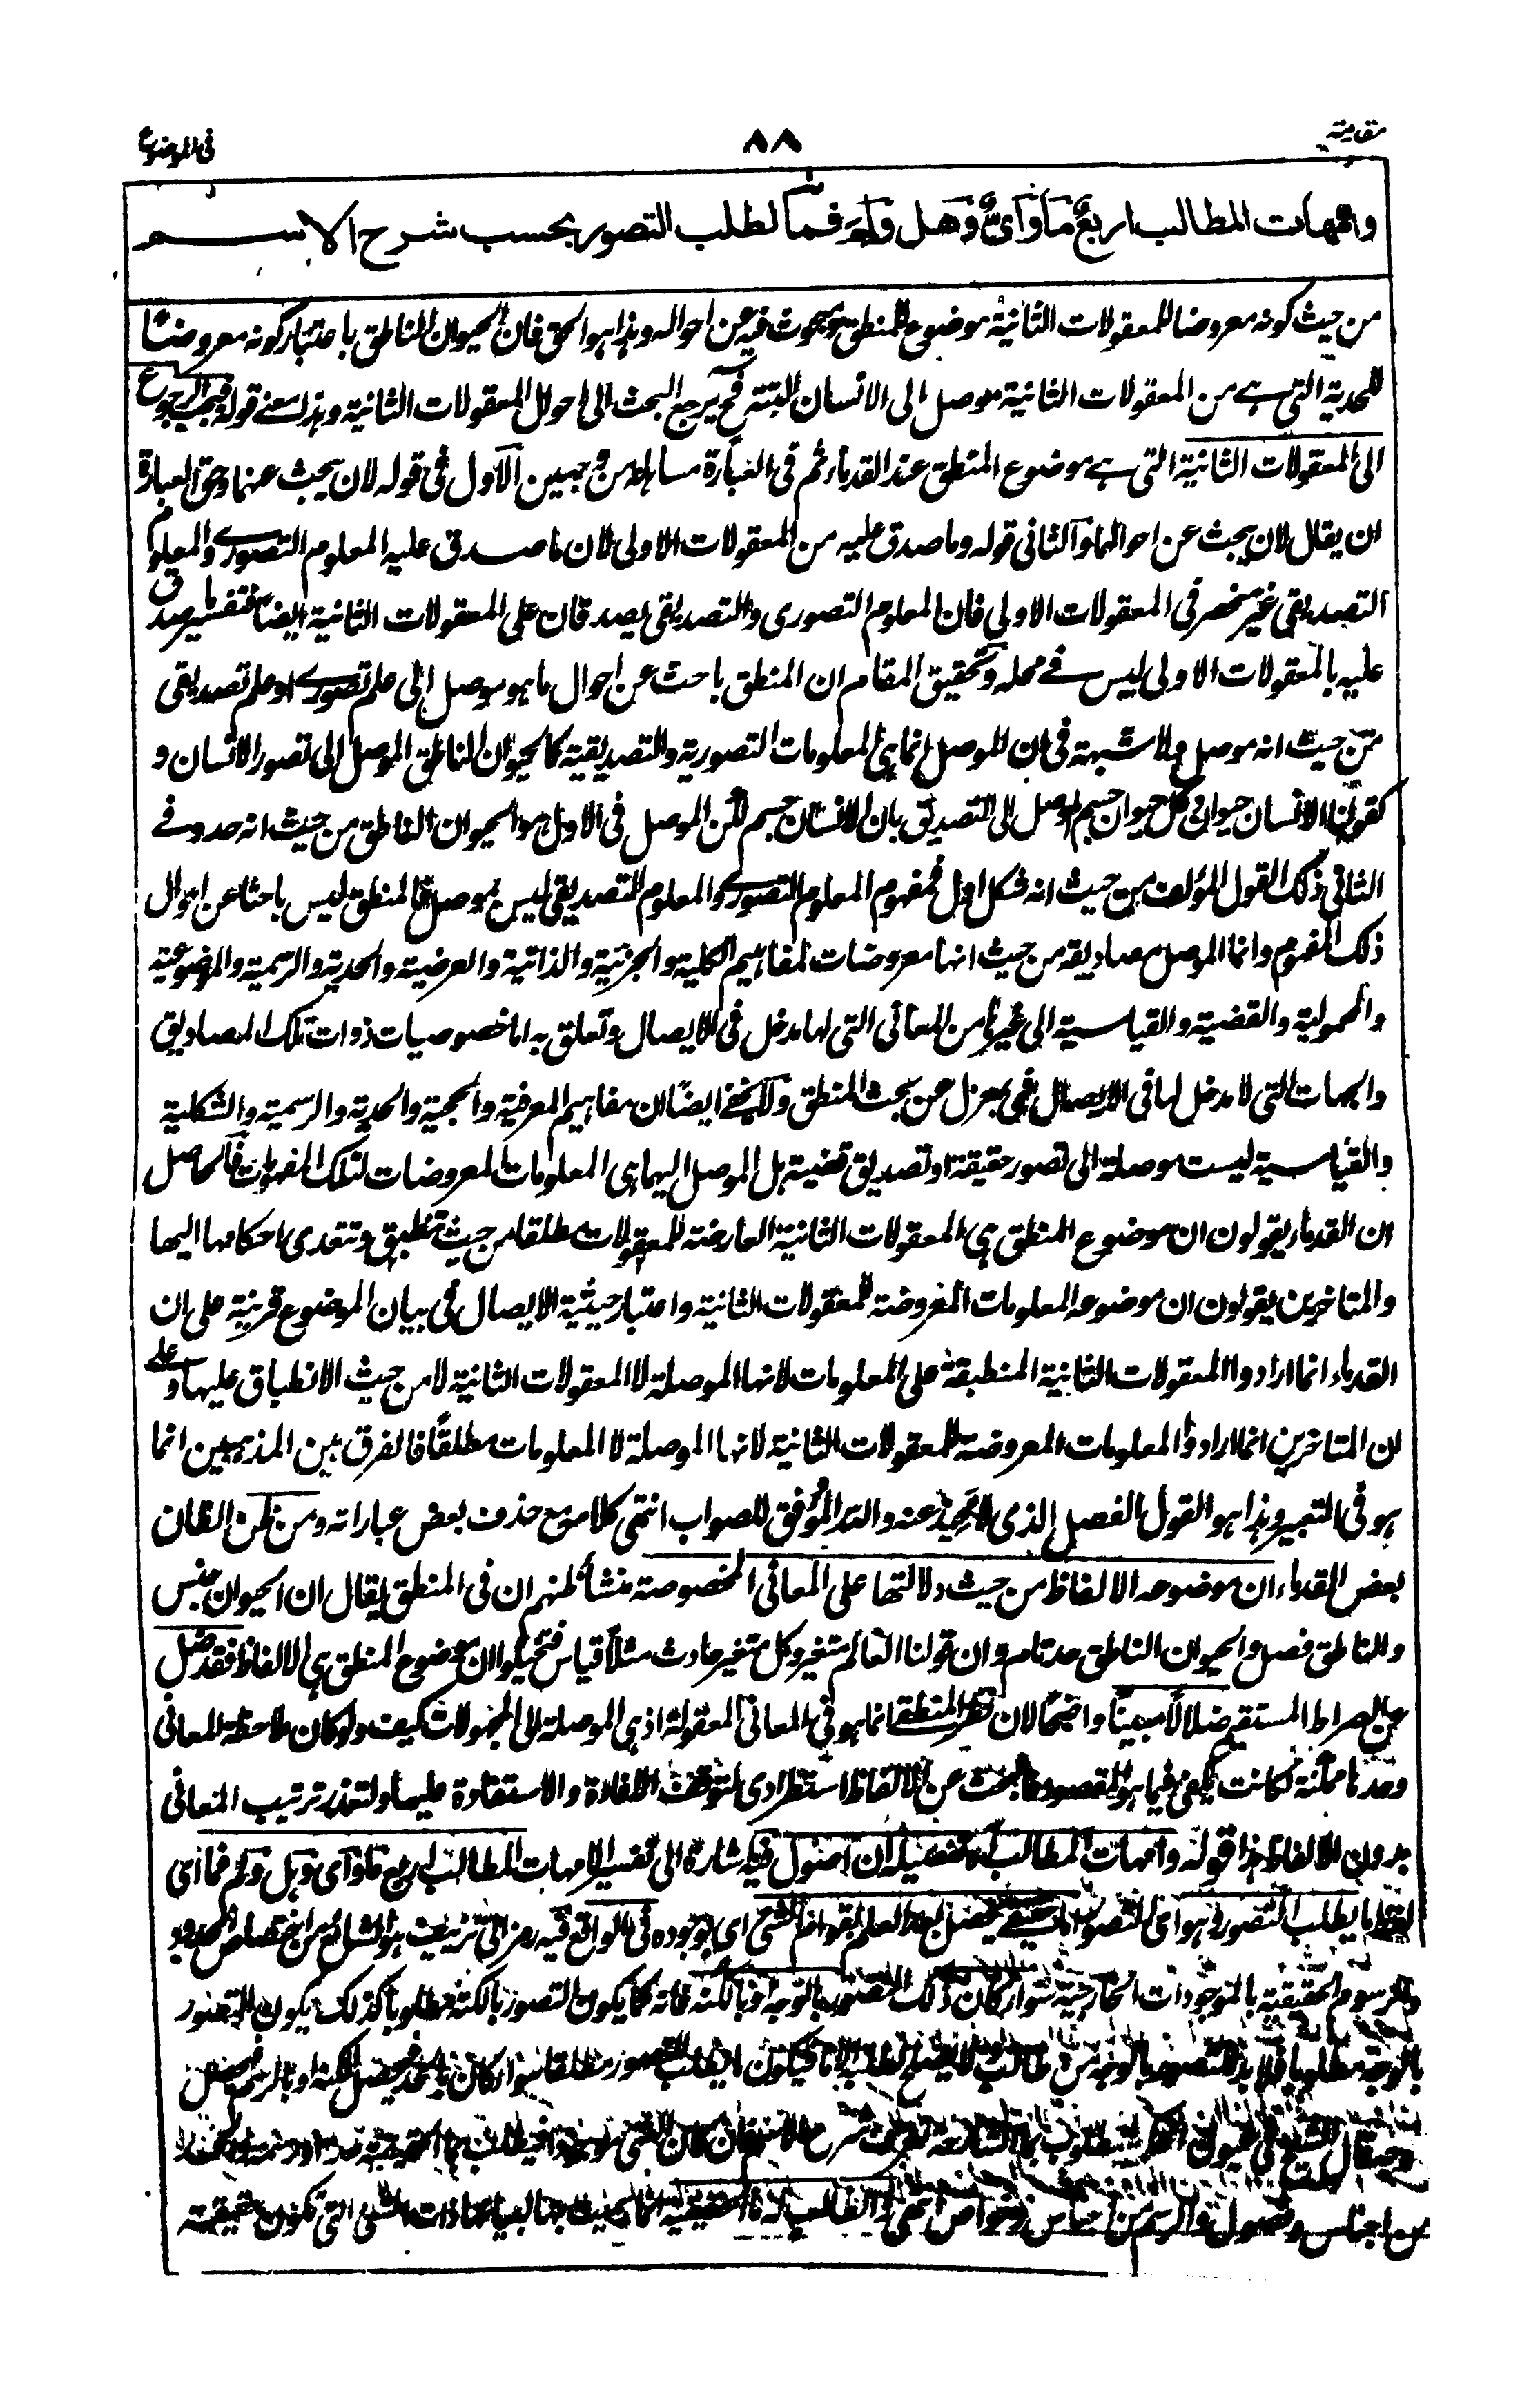 مقدمة
٨٨
فی الموضوع
وامهات المطالب اربع ما وای وهل ولم فما لطلب التصور بحسب شرح الاسم
من حیث کونه معروضا للمعقولات الثانیة موضوع للمنطق مبحوث فیه عن احواله وهذا هو الحق فان الحیوان الناطق باعتبار کونه معروضا
للحدیة التی هے من المعقولات الثانیة موصل الی الانسان البتة فح یرجع البحث الی احوال المعقولات الثانیة وهذا معنے قوله فیجب الرجوع
الی المعقولات الثانیة التی هے موضوع المنطق عند القدماء ثم فی العبارة مساهلة من وجهین الاول فی قوله لان یبحث عنها وحق العبارة
ان یقال لان یبحث عن احوالها والثانی قوله وما صدق علیه من المعقولات الاولی لان ما صدق علیه المعلوم التصورے والمعلوم
التصدیقی غیر منحصر فی المعقولات الاولی فان المعلوم التصوری والتصدیقی یصدقان علی المعقولات الثانیة ایضا فتفسیر ما صدق
علیه بالمعقولات الاولی لیس فے محله وتحقیق المقام ان المنطق باحث عن احوال ما هو موصل الی علم تصورے او علم تصدیقی
من حیث انه موصل ولا شبهة فی ان الموصل انما هی المعلومات التصوریة والتصدیقیة کالحیوان الناطق الموصل الی تصور الانسان و
کقولنا الانسان حیوان وکل حیوان جسم الموصل الی التصدیق بان الانسان جسم لکن الموصل فی الاول هو الحیوان الناطق من حیث انه حد وفے
الثانی ذلک القول المؤلف من حیث انه شکل اول فمفهوم المعلوم التصورے والمعلوم التصدیقی لیس بموصل فالمنطق لیس باحثا عن احوال
ذلک المفهوم وانما الموصل مصادیقه من حیث انها معروضات لمفاهیم الکلیة والجزئیة والذاتیة والعرضیة والحدیة والرسمیة والموضوعیة
والمحمولیة والقضیة والقیاسیة الی غیرها من المعانی التی لها مدخل فی الایصال وتعلق به اما خصوصیات ذوات تلک المصادیق
والجهات التی لا مدخل لها فی الایصال فهی بمعزل عن بحث المنطق ولا یخفے ایضا ان مفاهیم المعرفیة والحجیة والحدیة والرسمیة والشکلیة
والقیاسیة لیست موصلة الی تصور حقیقة او تصدیق قضیة بل الموصل الیهما هی المعلومات المعروضات لتلک المفهومات فالحاصل
ان القدماء یقولون ان موضوع المنطق هی المعقولات الثانیة العارضة للمعقولات مطلقا من حیث تنطبق وتتعدی احکامها الیها
والمتاخرین یقولون ان موضوعه المعلومات المعروضة للمعقولات الثانیة واعتبار حیثیة الایصال فی بیان الموضوع قرینة علی ان
القدماء انما ارادوا المعقولات الثانیة المنطبقة علی المعلومات لانها الموصلة لا المعقولات الثانیة لا من حیث الانطباق علیها وعلے
ان المتاخرین انما ارادوا المعلومات المعروضة للمعقولات الثانیة لانها الموصلة لا المعلومات مطلقا فالفرق بین المذهبین انما
هو فی التعبیر وهذا هو القول الفصل الذی لا محید عنه والله الموفق للصواب انتهی کلامه مع حذف بعض عباراته ومن ظن الظان
بعض القدماء ان موضوعه الالفاظ من حیث دلالتها علی المعانی المخصوصة منشأ ظنهم ان فی المنطق یقال ان الحیوان جنس
والناطق فصل والحیوان الناطق حد تام وان قولنا العالم متغیر وکل متغیر حادث مثلا قیاس فتخیلوا ان موضوع المنطق هی الالفاظ فقد ضل
عن الصراط المستقیم ضلالا مبینا واضحا لان نظر المنطقے انما هو فی المعانی المعقولة اذ هی الموصلة الی المجهولات کیف ولو کان ملاحظة المعانی
وحدها ممکنة لکانت تکفی فیما هو المقصود فالبحث عن الالفاظ استطرادی لتوقف الافادة والاستفادة علیها ولتعذر ترتیب المعانی
بدون الالفاظ هذا قوله وامهات المطالب آه تفصیله ان اصول فیه اشارة الی تفسیر الامهات المطالب اربع ما وای وهل ولم فما ای
لفظ ما یطلب التصور هو ای التصور اما حقیقے یحصل بعد العلم بقوام الشئ ای بوجوده فی الواقع فیه رمز الی تزییف هو الشائع من اختصاص الحدود
والرسوم الحقیقیة بالموجودات الخارجیة سواء کان ذلک التصور بالوجه او بالکنه فانه کما یکون التصور بالکنه مطلوبا کذلک یکون التصور
بالوجه مطلوبا فلا بد للتصور بالوجه من طالب لا یصلح لطلبه الا ما فیکون ما یطلب التصور مطلقا سواء کان بالحد فیحصل الکنه او بالرسم فیحصل
الشیخ فی عیون الحکمة شرح الاسم فان کان الشئ موجودا فیطلب بما الحقیقیة
من اجناس وفصول والرسم من اجناس وخواص فهی الطالب له ما الحقیقیة ذات الشئ التی تکون حقیقته